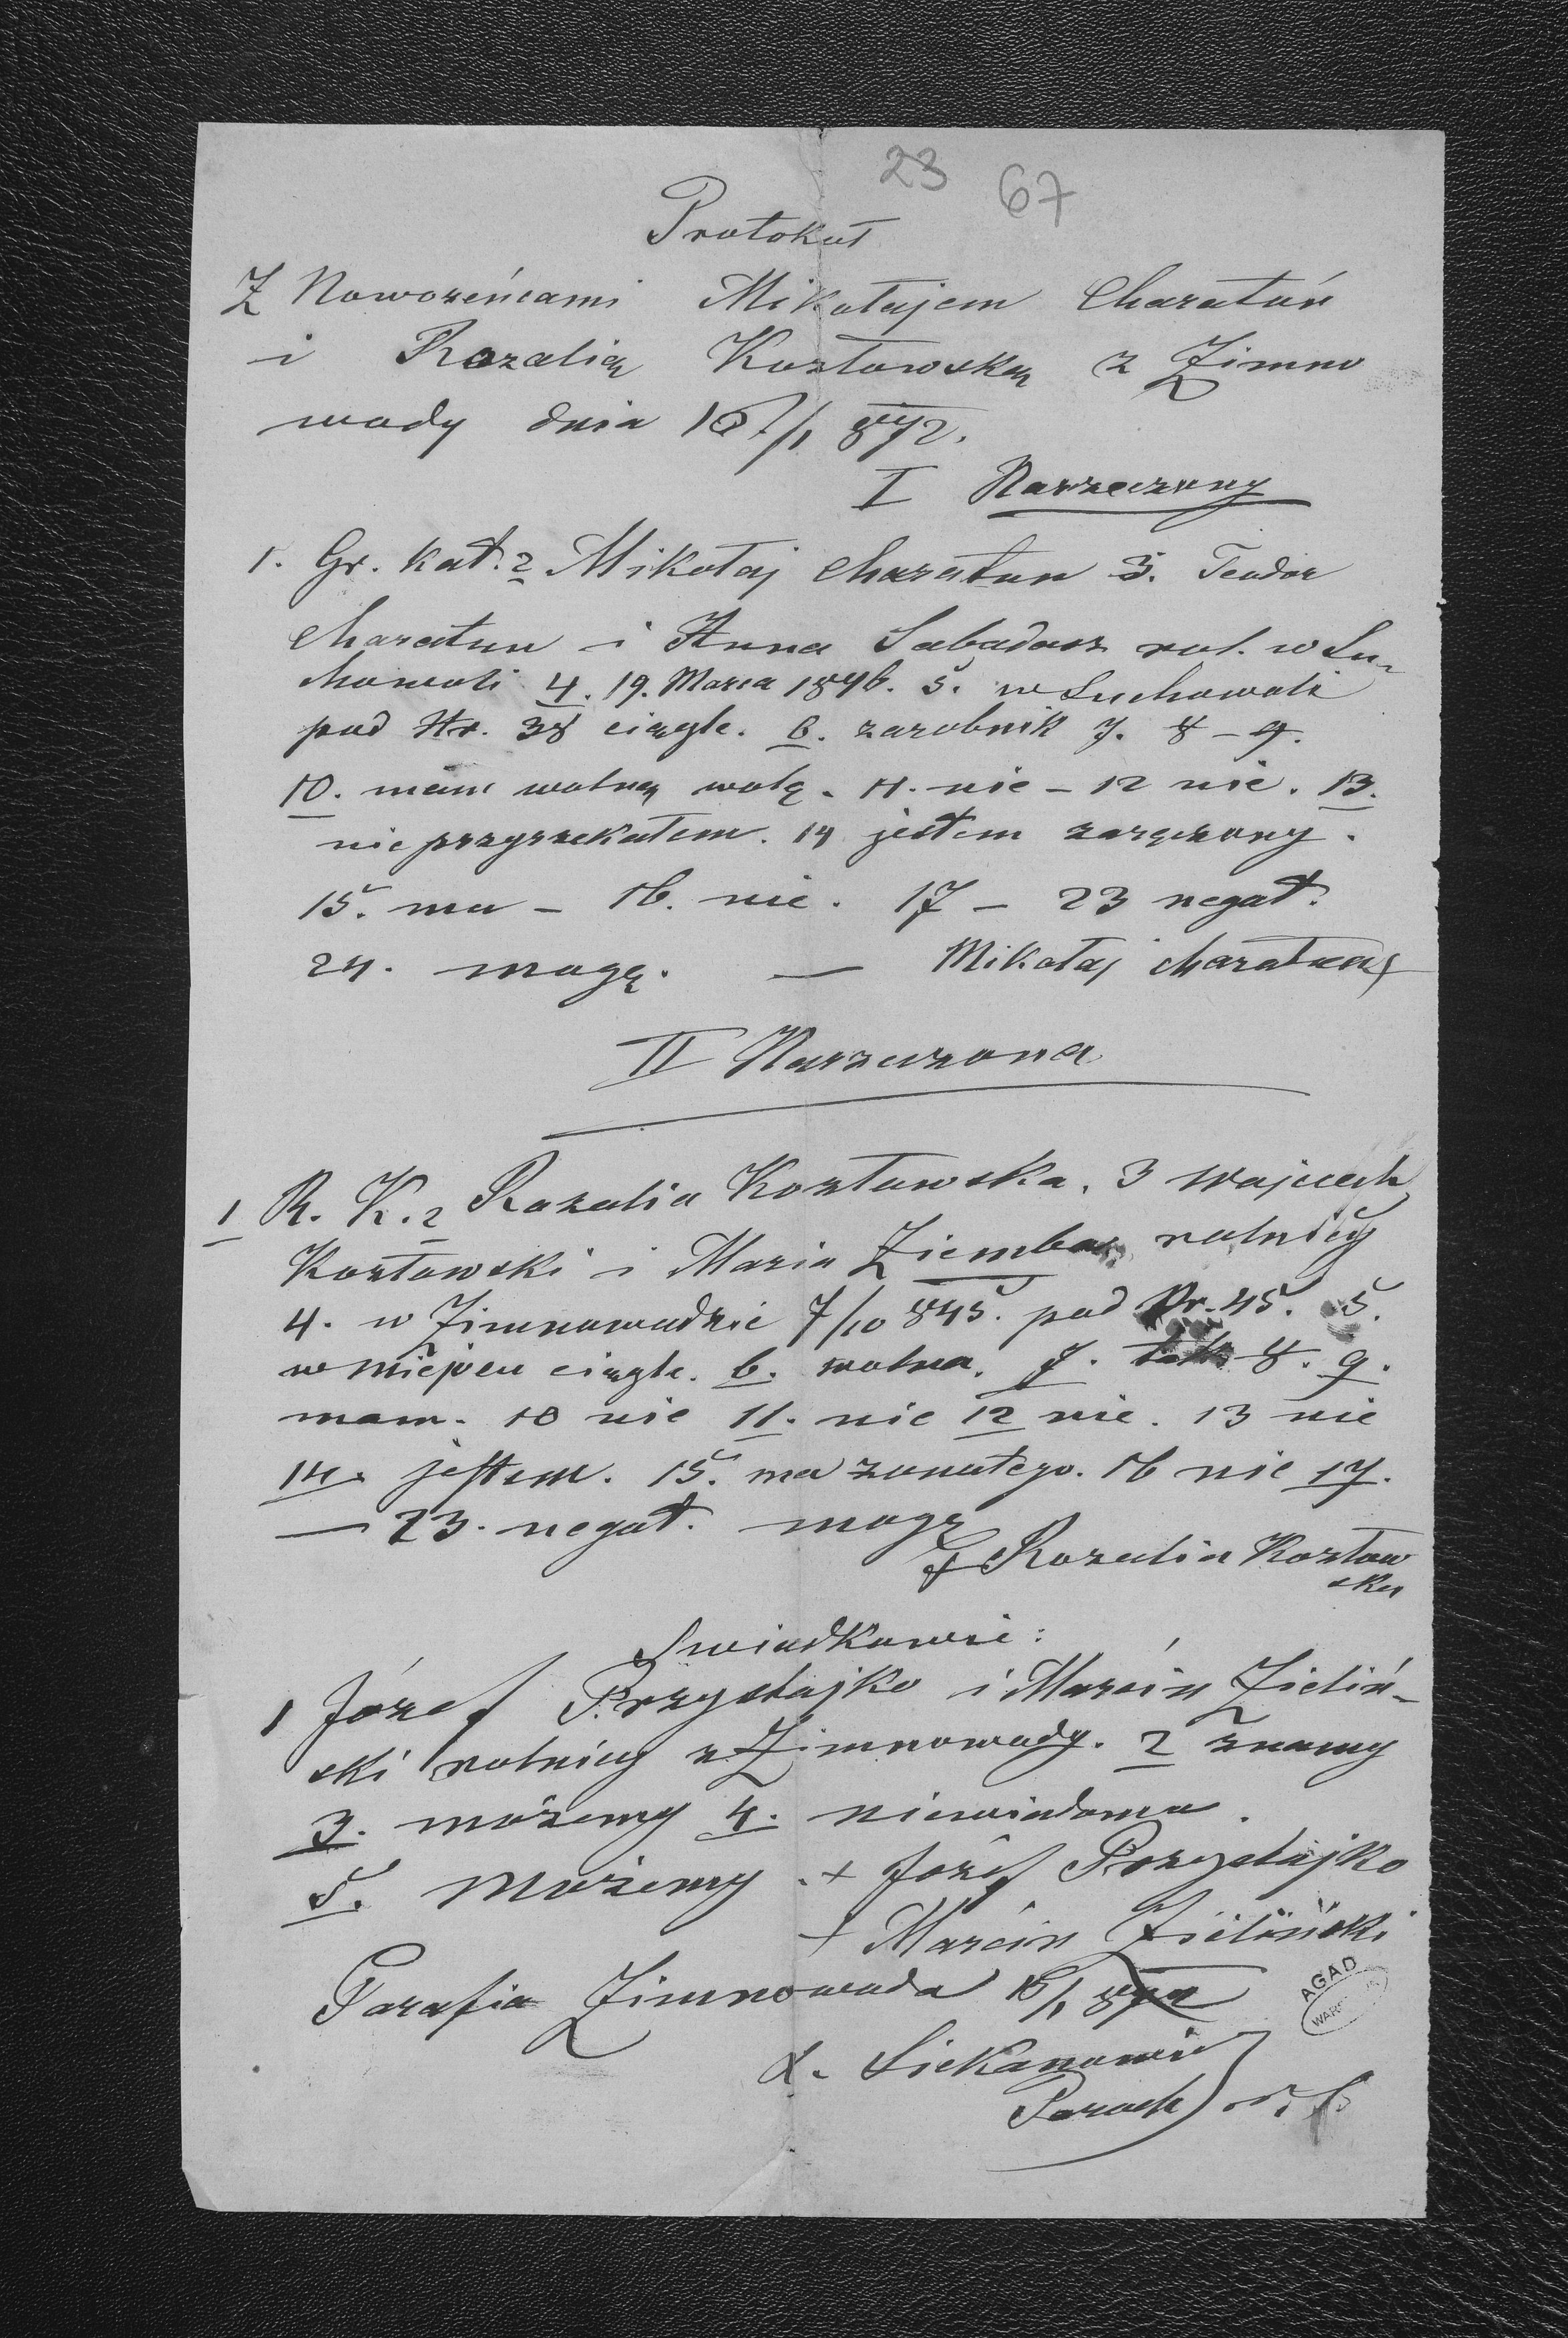 23 67
Protokuł
Z Nowożeńcami Mikołajem Charatún
i Rozalią Kozłowską z Zimno
wody dnia 10/1 872.
I Narzeczony
1. Gr. Kat. 2 Mikołaj Charatun 3. Teodor
Charatun i Anna Sabadasz rol. w Su-
chowoli 4. 19. Marca 1846. 5. w Suchowoli
pod Nr. 38 ciągle. 6. zarobnik 7. 8 – 9.
10. mam wolną wolę. 11. nie – 12 nie. 13.
nie przyrzekałem. 14 jestem zaręczony.
15. ma – 16. nie. 17 – 23 negat.
24. mogę. — Mikołaj Charatun +
II Narzeczona
1 R. K. 2 Rozalia Kozłowska. 3 Wojciech
Kozłowski i Maria Ziemba rolnicy
4. w Zimnowodzie 7/10 845. pod Nr. 45. 5.
w miejscu ciągle. 6. wolna. 7. tak 8. 9.
mam. 10 nie 11. nie 12 nie. 13 nie
14. jestem. 15. ma zonatego. 16 nie 17.
— 23. negat. mogę
+ Rozalia Kozłow
ska
Swiadkowie:
1 Józef Przystajko i Marcin Zieliń-
ski rolnicy z Zimnowody. 2 znamy
3. możemy 4. niewiadomo.
5. Możemy. + Józef Przystajko
+ Marcin Zieliński
Parafia Zimnowoda 10/1 872
Siekanowicz
Paroch
AGAD